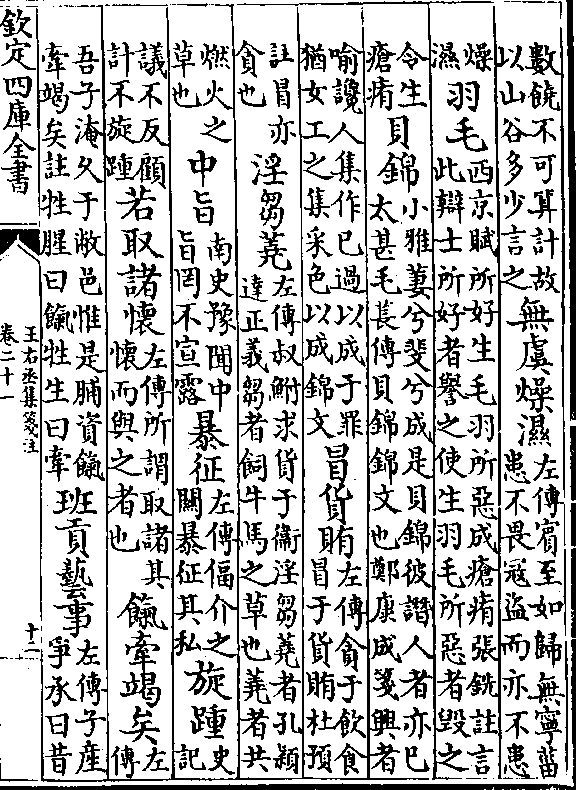 數饒不可算計故
以山谷多少言之
無虞燥濕
左傳賓至如歸無寧菑
患不畏寇盜而亦不患
燥
濕
羽毛
西京賦所好生毛羽所惡成瘡痏張銑註言
此辯士所好者譽之使生羽毛所惡者毀之
令生
瘡痏
貝錦
小雅萋兮斐兮成是貝錦彼譖人者亦已
太甚毛萇傳貝錦錦文也鄭康成箋興者
喻讒人集作已過以成于罪
猶女工之集采色以成錦文
冒貨賄
左傳貪于飲食
冒于貨賄杜預
註冒亦
貪也
淫芻蕘
左傳叔鮒求貨于衞淫芻蕘者孔穎
達正義芻者飼牛馬之草也蕘者共
燃火之
草也
中旨
南史豫聞中
旨罔不宣露
暴征
左傳偪介之
關暴征其私
旋踵
史
記
議不反顧
計不旋踵
若取諸懷
左傳所謂取諸其
懷而與之者也
餼牽竭矣
左
傳
吾子淹久于敝邑惟是脯資餼
牽竭矣註牲腥曰餼牲生曰牽
班貢藝事
左傳子產
爭承曰昔
欽定四庫全書
王右丞集箋注
卷二十一
十二